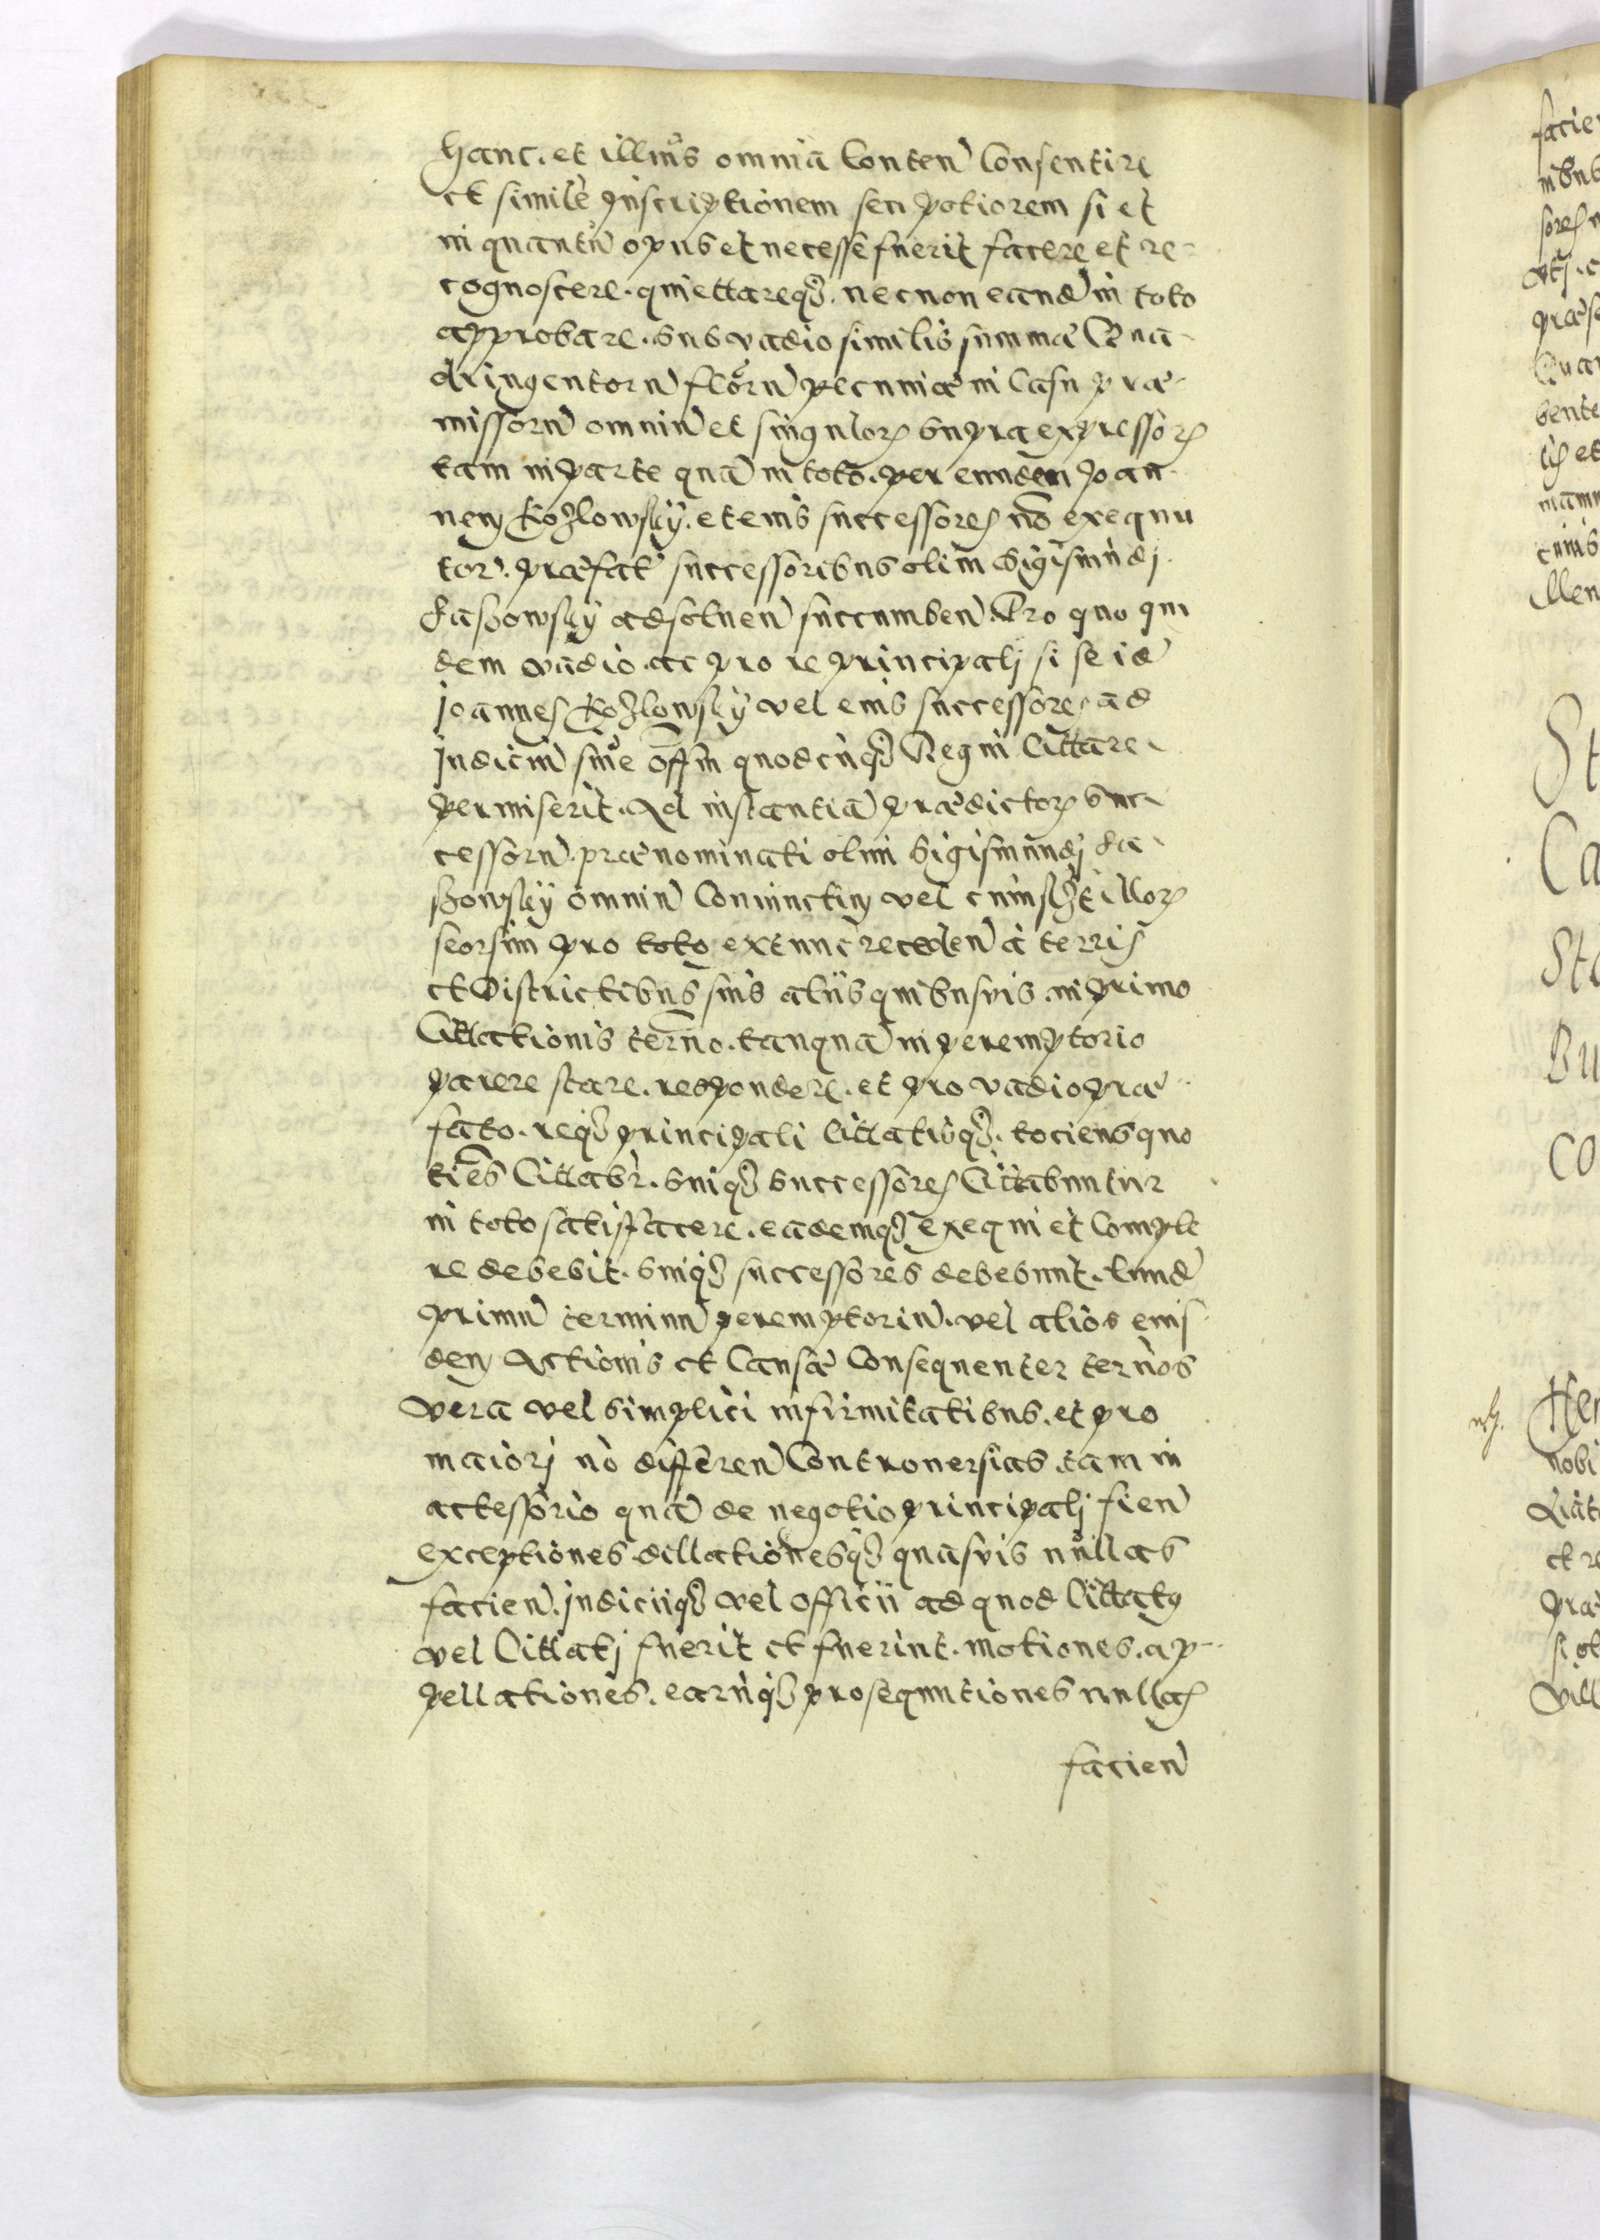 hanc. et illius omnia Conten̄ Consentire
et similē Inscriptionem seu potiorem si et
in quantū opus et necesse fuerit facere et re-
cognoscere. quiettareqꝫ. necnon eandē in toto
approbare. sub vadio similis summæ Qua-
dringentorū florū pecuniæ in Casu præ-
missorū omniū et singulorꝝ supra expressorꝝ
tam in parte quā in toto. per eundem Joan
nem Kozlowsky. et eius successores nō exequu
tor̄. præfat̄ successoribus olim Sigismundj
Laszowsky adsoluen̄ succumben̄. Pro quo qui
dem vadio. ac pro re principalj si se idē
Joannes Kozlowsky vel eius successores ad
Judiciū siue offm̄ quodcūqꝫ Regni Cittare
permiserit. Ad instantiā prædictorꝝ suc-
cessorū. prænominati olim Sigismundj La-
szowsky omniū Coniunctim vel cuiuslꝫt illorꝝ
seorsim pro toto extunc receden̄ à terris
et Districtibus suis aliis quibusuis. in primo
Cittationis term̄no. tanquā in peremptorio
parere stare. respondere. et pro vadio præ
fato. reqꝫ principali Cittatusqꝫ. tociens quo
ties Cittabr̄. suiqꝫ successores Cittabuntur
in toto satisfacere. eademqꝫ exequi et Comple
re debebit. suiqꝫ successores debebunt. Eundē
primū terminū peremptoriū. vel alios eius
dem Actionis et Causæ Consequenter term̄nos
vera vel simplici infirmitatibus. et pro
maiorj nō differen̄ Controuersias. tam in
accessorio quā de negotio principalj fien̄
exceptiones. dillationesqꝫ quasuis nullas
facien̄. judiciiqꝫ vel officii ad quod Cittatus
vel Cittatj fuerit et fuerint. motiones. ap-
pellationes. earūqꝫ prosequutiones nullas
facien̄